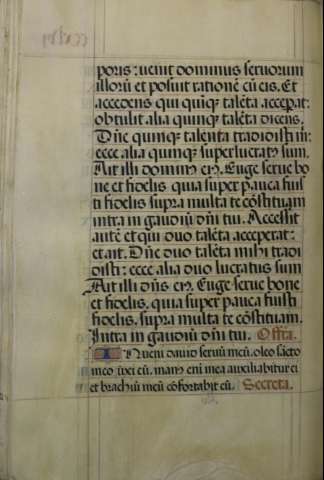 poris: uenit dominus seruorum
illorũ et posuit rationẽ cũ eis. Et
accedens qui quinqȝ talẽta acceꝑat:
obtulit alia quinqȝ talẽta dicens.
Dñe quinqȝ talenta tradidisti m̃:
ecce alia quinqȝ superlucratus sum.
Ait illi dominus eius. Euge serue bo
ne et fidelis quia super pauca fuis
ti fidelis supra multa te cõstituam
intra in gaudiũ dñi tui. Accessit
autẽ et qui duo talẽta acceperat:
et ait. Dñe duo talẽta mihi tradi
disti: ecce alia duo lucratus sum
Ait illi dñs eius. Euge serue bone
et fidelis. quia super pauca fuisti
fidelis. supra multa te cõstituam.
Intra in gaudiũ dñi tui. Offta.
Inueni dauid seruũ meũ. oleo sãcto
meo ũxi eũ. manus eni mea auxiliabitur ei
et brachiũ meũ cõfortabit eũ. Secreta.